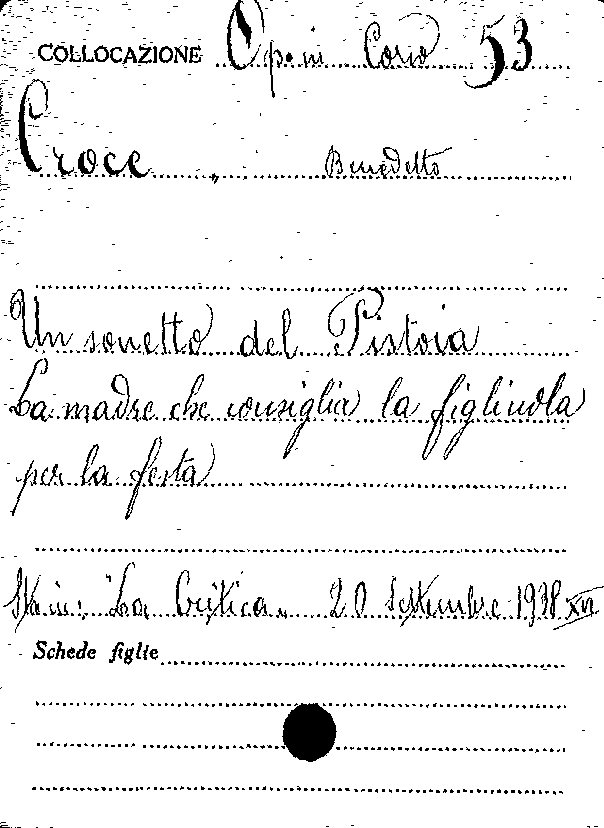 COLLOCAZIONE Op.ni Corso 53
Croce „ Benedetto
Un sonetto del Pistoia
La madre che consiglia la figliuola
per la festa
Sta in: "La Critica" 20 Settembre 1938 XVI
Schede figlie